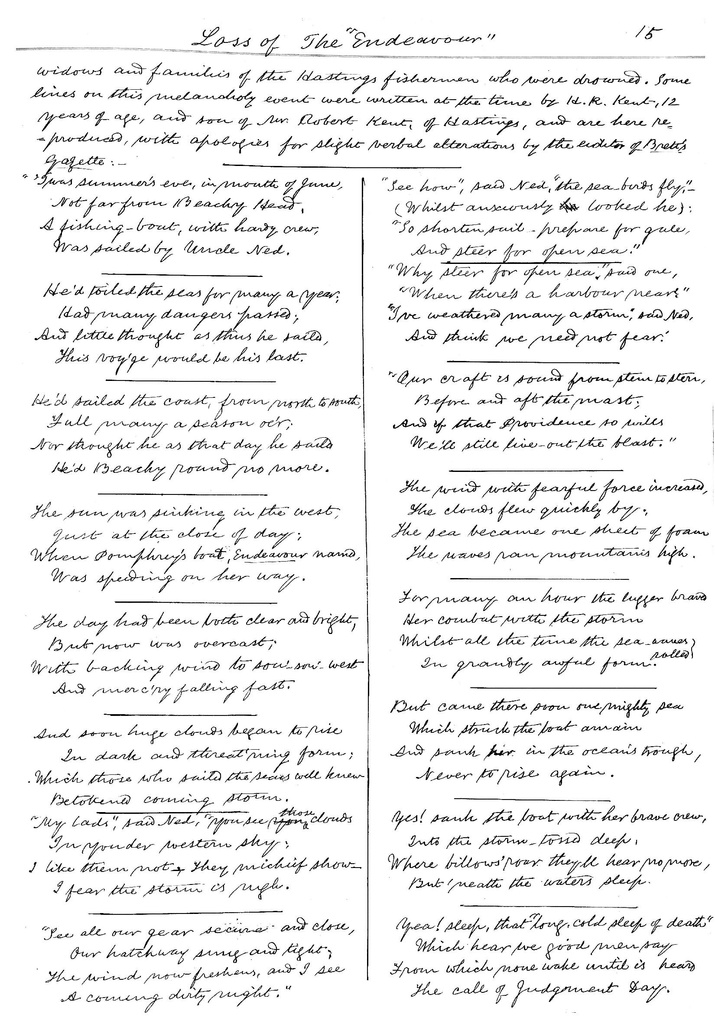 Loss of The "Endeavour"
15
widows and families of the Hastings fishermen who were drowned. Some
lines on this melancholy event were written at the time by H. R. Kent, 12
years of age, and son of Mr. Robert Kent, of Hastings, and are here re-
-produced, with apologies for slight verbal alterations by the editor of Brett's
Gazette:-
"'Twas summer's eve, in month of June,
Not far from Beachy Head,
A fishing-boat, with hardy crew,
Was sailed by Uncle Ned.
He'd toiled the seas for many a year;
Had many dangers passed;
And little thought as thus he sailed,
This voy'ge would be his last.
He'd sailed the coast, from north to south,
Full many a season o'er;
Nor thought he as that day he sailed
He'd Beachy round no more.
The sun was sinking in the west,
Just at the close of day;
When Pomphrey's boat, Endeavour named,
Was speeding on her way.
The day had been both clear and bright,
But now was overcast;
With backing wind to sou'-sou'-west
And merc'ry falling fast.
And soon huge clouds began to rise
In dark and threat'ning form;
Which those who sailed the seas well knew
Betokened coming storm.
"My lads", said Ned, "you see those clouds
In yonder western sky;
I like them not - They mischief show -
I fear the storm is nigh.
"See all our gear secure and close,
Our hatchway snug and tight;
The wind now freshens, and I see
A coming dirty night."
"See how", said Ned "the sea-birds fly,"-
(Whilst anxiously looked he):
"So shorten sail - prepare for gale,
And steer for open sea."
"Why steer for open sea?" said one,
"When there's a harbour near?"
"I've weathered many a storm", said Ned,
And think we need not fear.'
"Our craft is sound from stem to stern,
Before and aft the mast;
And if that Providence so wills
We'll still live-out the blast."
The wind with fearful force increased,
The clouds flew quickly by;
The sea became one sheet of foam
The waves ran mountains high.
For many an hour the lugger braved
Her combat with the storm
Whilst all the time the sea-waves rolled
In grandly awful form.
But came there soon one mighty sea
Which struck the boat amain
And sank her in the ocean's trough,
Never to rise again.
Yes! sank the boat with her brave crew,
Into the storm-tossed deep,
Where billows' roar they'll hear no more,
But 'neath the waters sleep.
Yea! sleep, that "long, cold sleep of death"
Which hear we good men say
From which none wake until is heard
The call of Judgement Day.